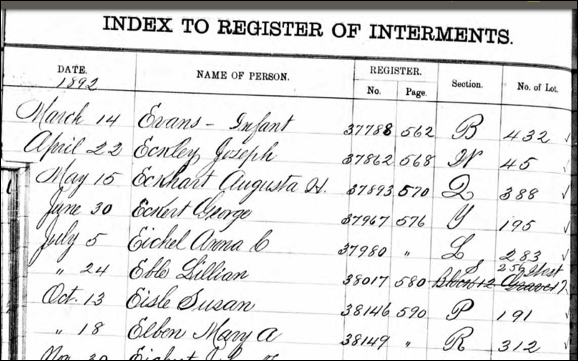 INDEX TO REGISTER OF INTERMENTS.
DATE. NAME OF PERSON. REGISTER. Section. No. of Lot.
1892 No. Page.
March 14 Evans - Infant 37788 562 B 432
April 22 Eckley Joseph 37862 568 N 45
May 15 Eckhart Augusta H. 37893 570 Q 388
June 30 Eckert George 37967 576 Y 195
July 5 Eichel Anna C 37980 " L 283
" 24 Eble Lillian 38017 580 S Block 12 256 West Graves
Oct. 13 Eisle Susan 38146 590 P 191
" 18 Elben Mary A 38149 " R 312
Nov. 30